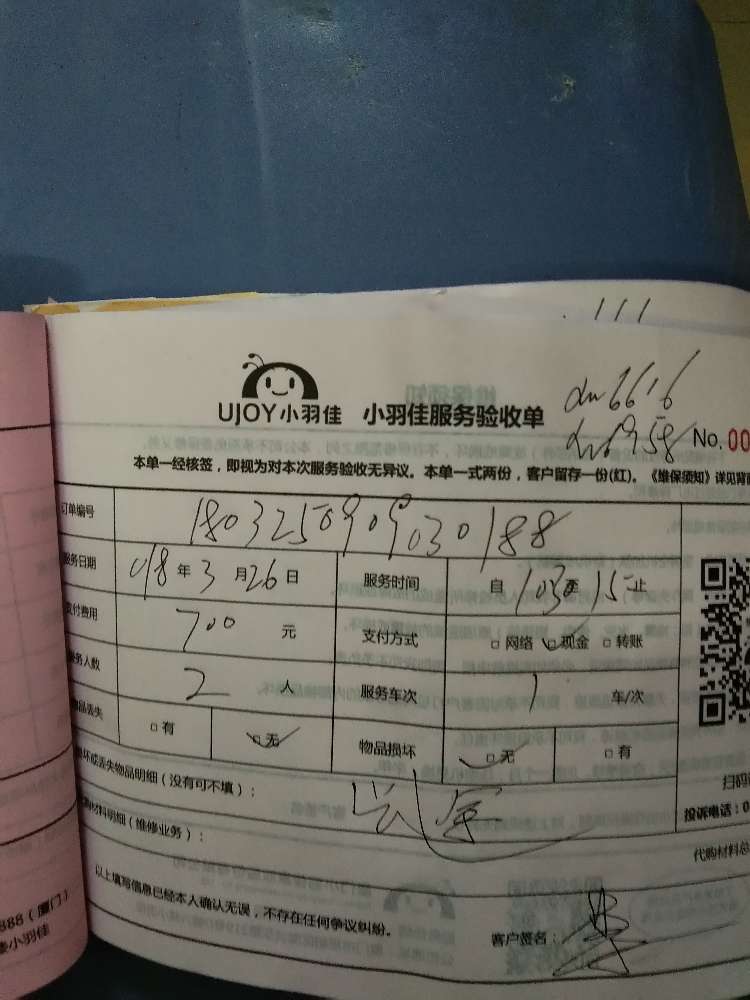 UJOY小羽佳 小羽佳服务验收单
No.00
本单一经核签，即视为对本次服务验收无异议。本单一式两份，客户留存一份(红)。《维保须知》详见背
订单编号 1803250909030188
服务日期 018年3月26日 服务时间 自1030至15止
支付费用 700元 支付方式 □网络 □现金 □转账
服务人数 2人 服务车次 1车/次
物品丢失 □有 □无 物品损坏 □无 □有
损坏或丢失物品明细（没有可不填）：
扫码
材料明细（维修业务）：
投诉电话：0
代购材料总
以上填写信息已经本人确认无误，不存在任何争议纠纷。
客户签名：
888（厦门）
小羽佳